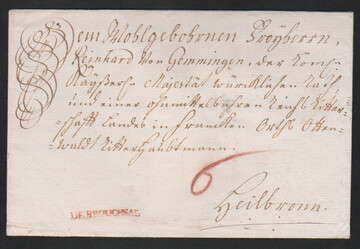 Dem Wohlgebohrnen Freyherrn,
Reinhard von Gemmingen, der Röm:
Kayßerl: Majestät würcklichen Rath
und einer ohnmittelbahren Reichs Ritter-
-schafft Landes in francken Orths Otten-
-waldt Ritterhaubtmann.
6
Heilbronn.
DE BRUCHSAL